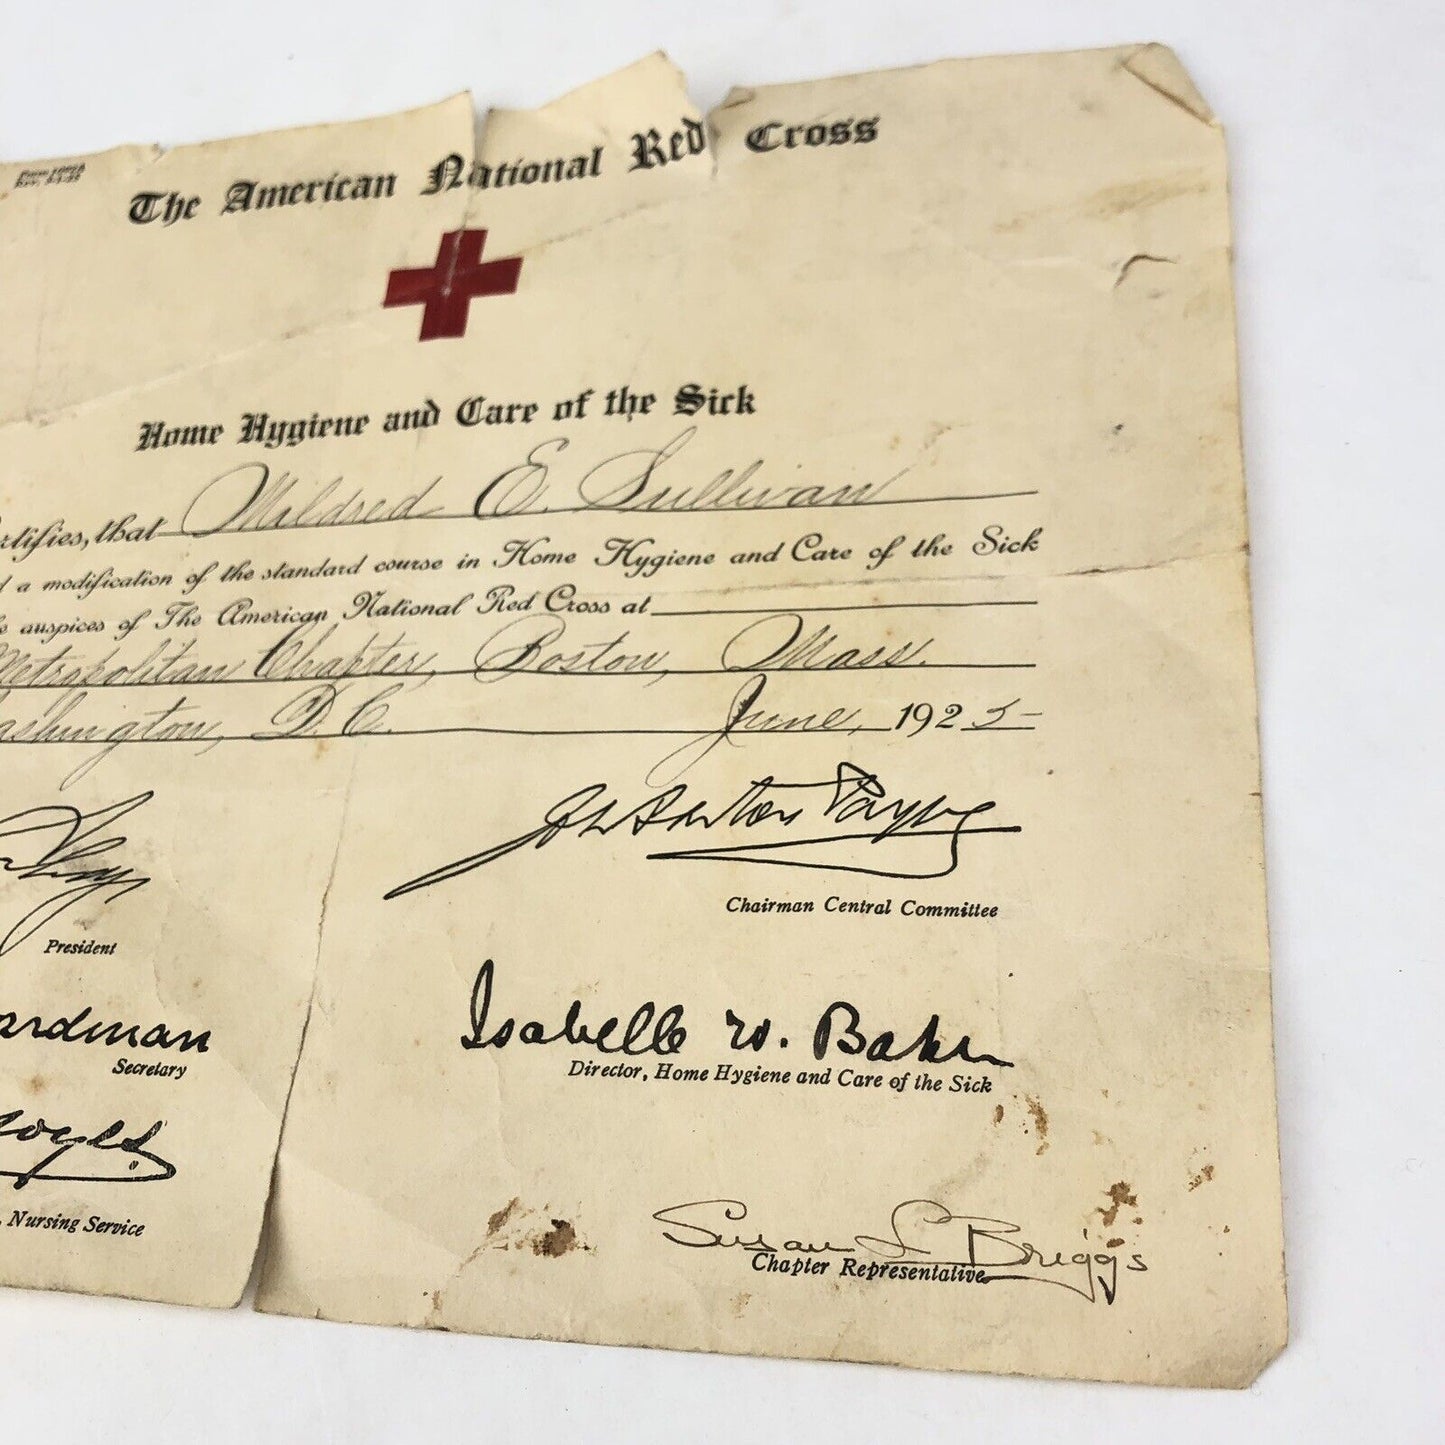 The American National Red Cross
Home Hygiene and Care of the Sick
rtifies, that Mildred E. Sullivan
d a modification of the standard course in Home Hygiene and Care of the Sick
e auspices of The American National Red Cross at
Metropolitan Chapter, Boston, Mass.
ashington, D.C. June, 1925
John Barton Payne
Chairman Central Committee
President
ardman
Secretary
Isabelle W. Baker
Director, Home Hygiene and Care of the Sick
oyes
Nursing Service
Susan L Briggs
Chapter Representative